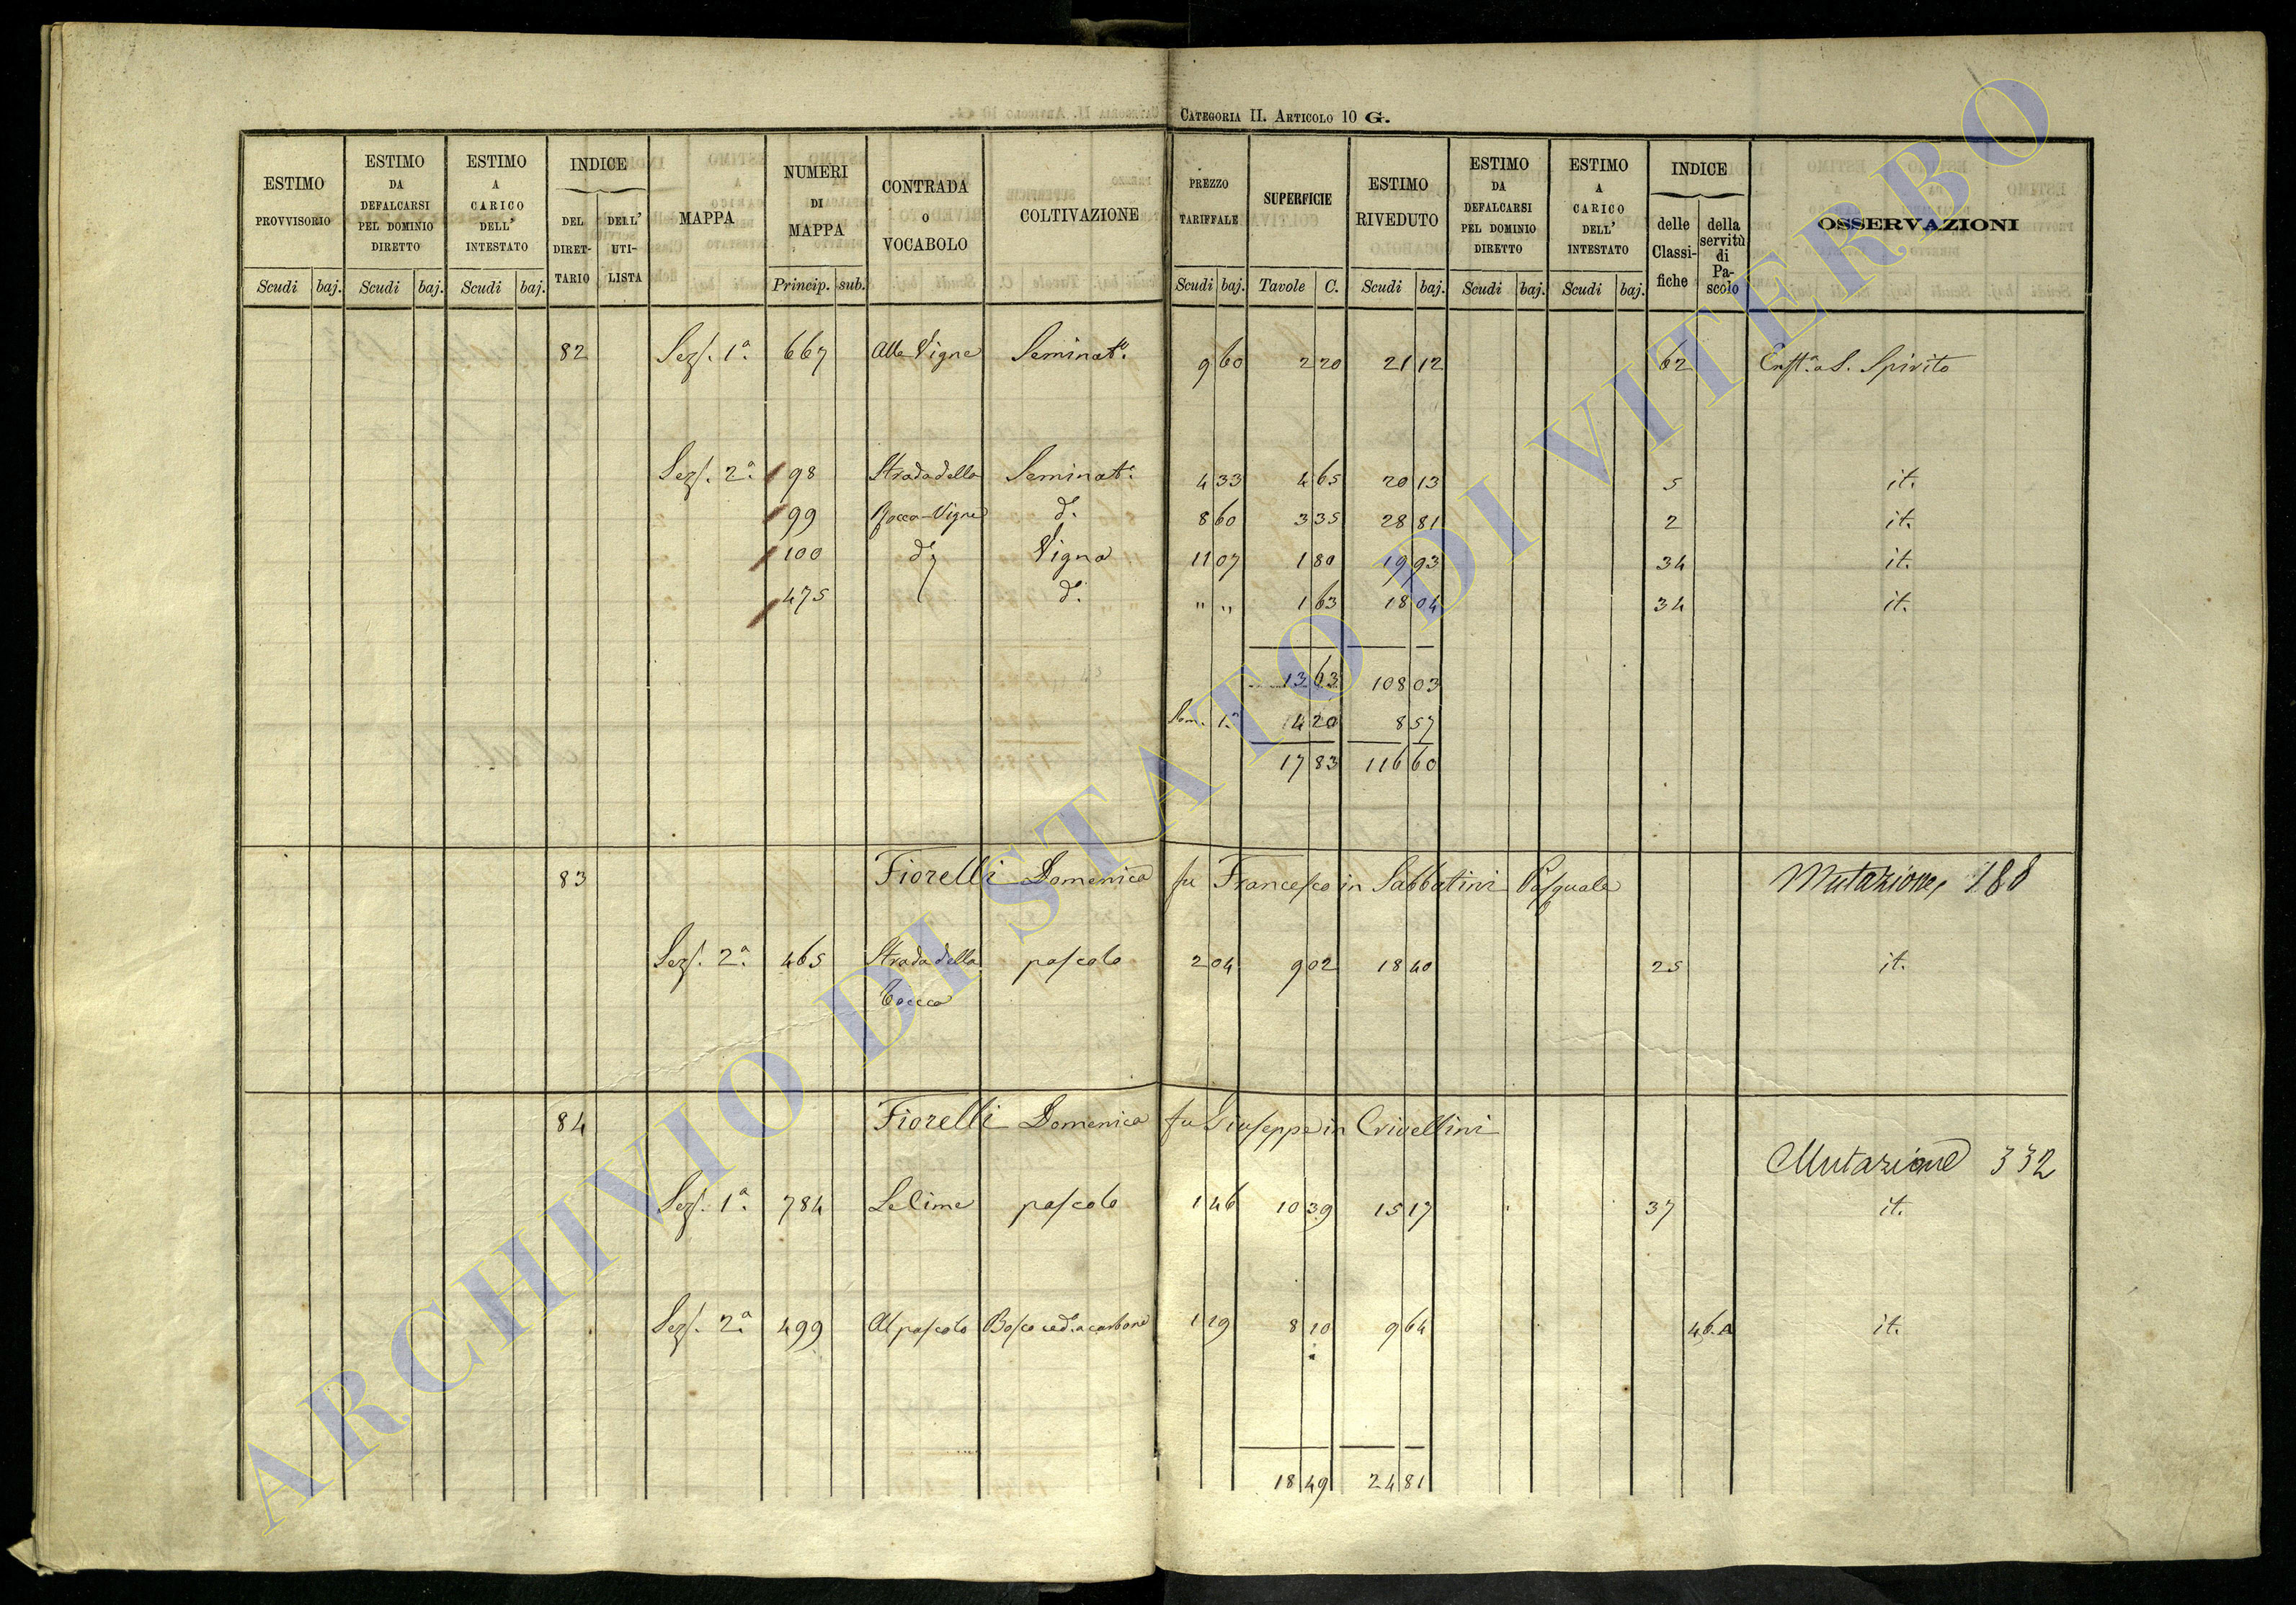 CATEGORIA II. ARTICOLO 10 G.
ESTIMO PROVVISORIO
Scudi baj.
ESTIMO DA DEFALCARSI PEL DOMINIO DIRETTO
Scudi baj.
ESTIMO A CARICO DELL' INTESTATO
Scudi baj.
INDICE
DEL DIRET-TARIO
DELL' UTI-LISTA
MAPPA
NUMERI DI MAPPA
Princip. sub.
CONTRADA O VOCABOLO
COLTIVAZIONE
PREZZO TARIFFALE
Scudi baj.
SUPERFICIE
Tavole C.
ESTIMO RIVEDUTO
Scudi baj.
ESTIMO DA DEFALCARSI PEL DOMINIO DIRETTO
Scudi baj.
ESTIMO A CARICO DELL' INTESTATO
Scudi baj.
INDICE
delle Classi-fiche
della servitù di Pa-scolo
OSSERVAZIONI
82 Sez. 1a. 667 Alle Vigne Seminato. 9 60 2 20 21 12 62 S. Spirito
Sez. 2a. 98 Strada della Seminato. 4 33 4 65 20 13 5 it.
99 Rocca-Vigne do. 8 60 3 35 28 81 2 it.
100 do Vigna 11 07 1 80 19 93 34 it.
475 do. " " 1 63 18 04 34 it.
13 63 108 03
1a 4 20 8 57
17 83 116 60
83 Fiorelli Domenica fu Francesco in Sabbatini Pasquale Mutazione, 188
Sez. 2a. 465 Strada della pascolo 2 04 9 02 18 40 25 it.
Rocca
84 Fiorelli Domenica fu Giuseppe in Crivellini
Mutazione 332
Sez. 1a. 784 Le lime pascolo 1 46 10 39 15 17 37 it.
Sez. 2a. 499 Al pascolo Bosco ced. a carbone 1 19 8 10 9 64 46.A it.
18 49 24 81
ARCHIVIO DI STATO DI VITERBO